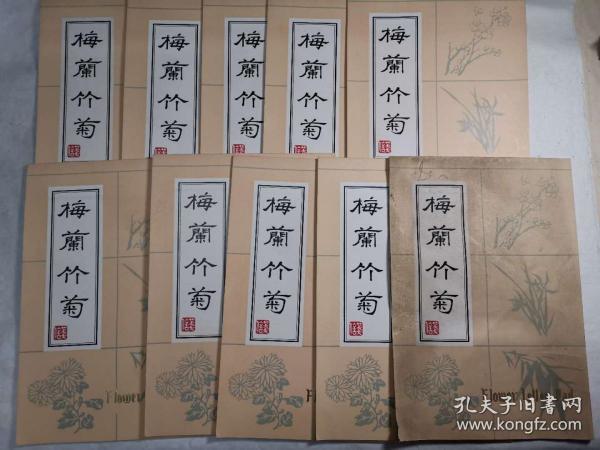 梅蘭竹菊
梅蘭竹菊
梅蘭竹菊
梅蘭竹菊
梅蘭竹菊
梅蘭竹菊
梅蘭竹菊
梅蘭竹菊
梅蘭竹菊
梅蘭竹菊
Flower
Flower Letter Pad
孔夫子旧书网
www.kongfz.com